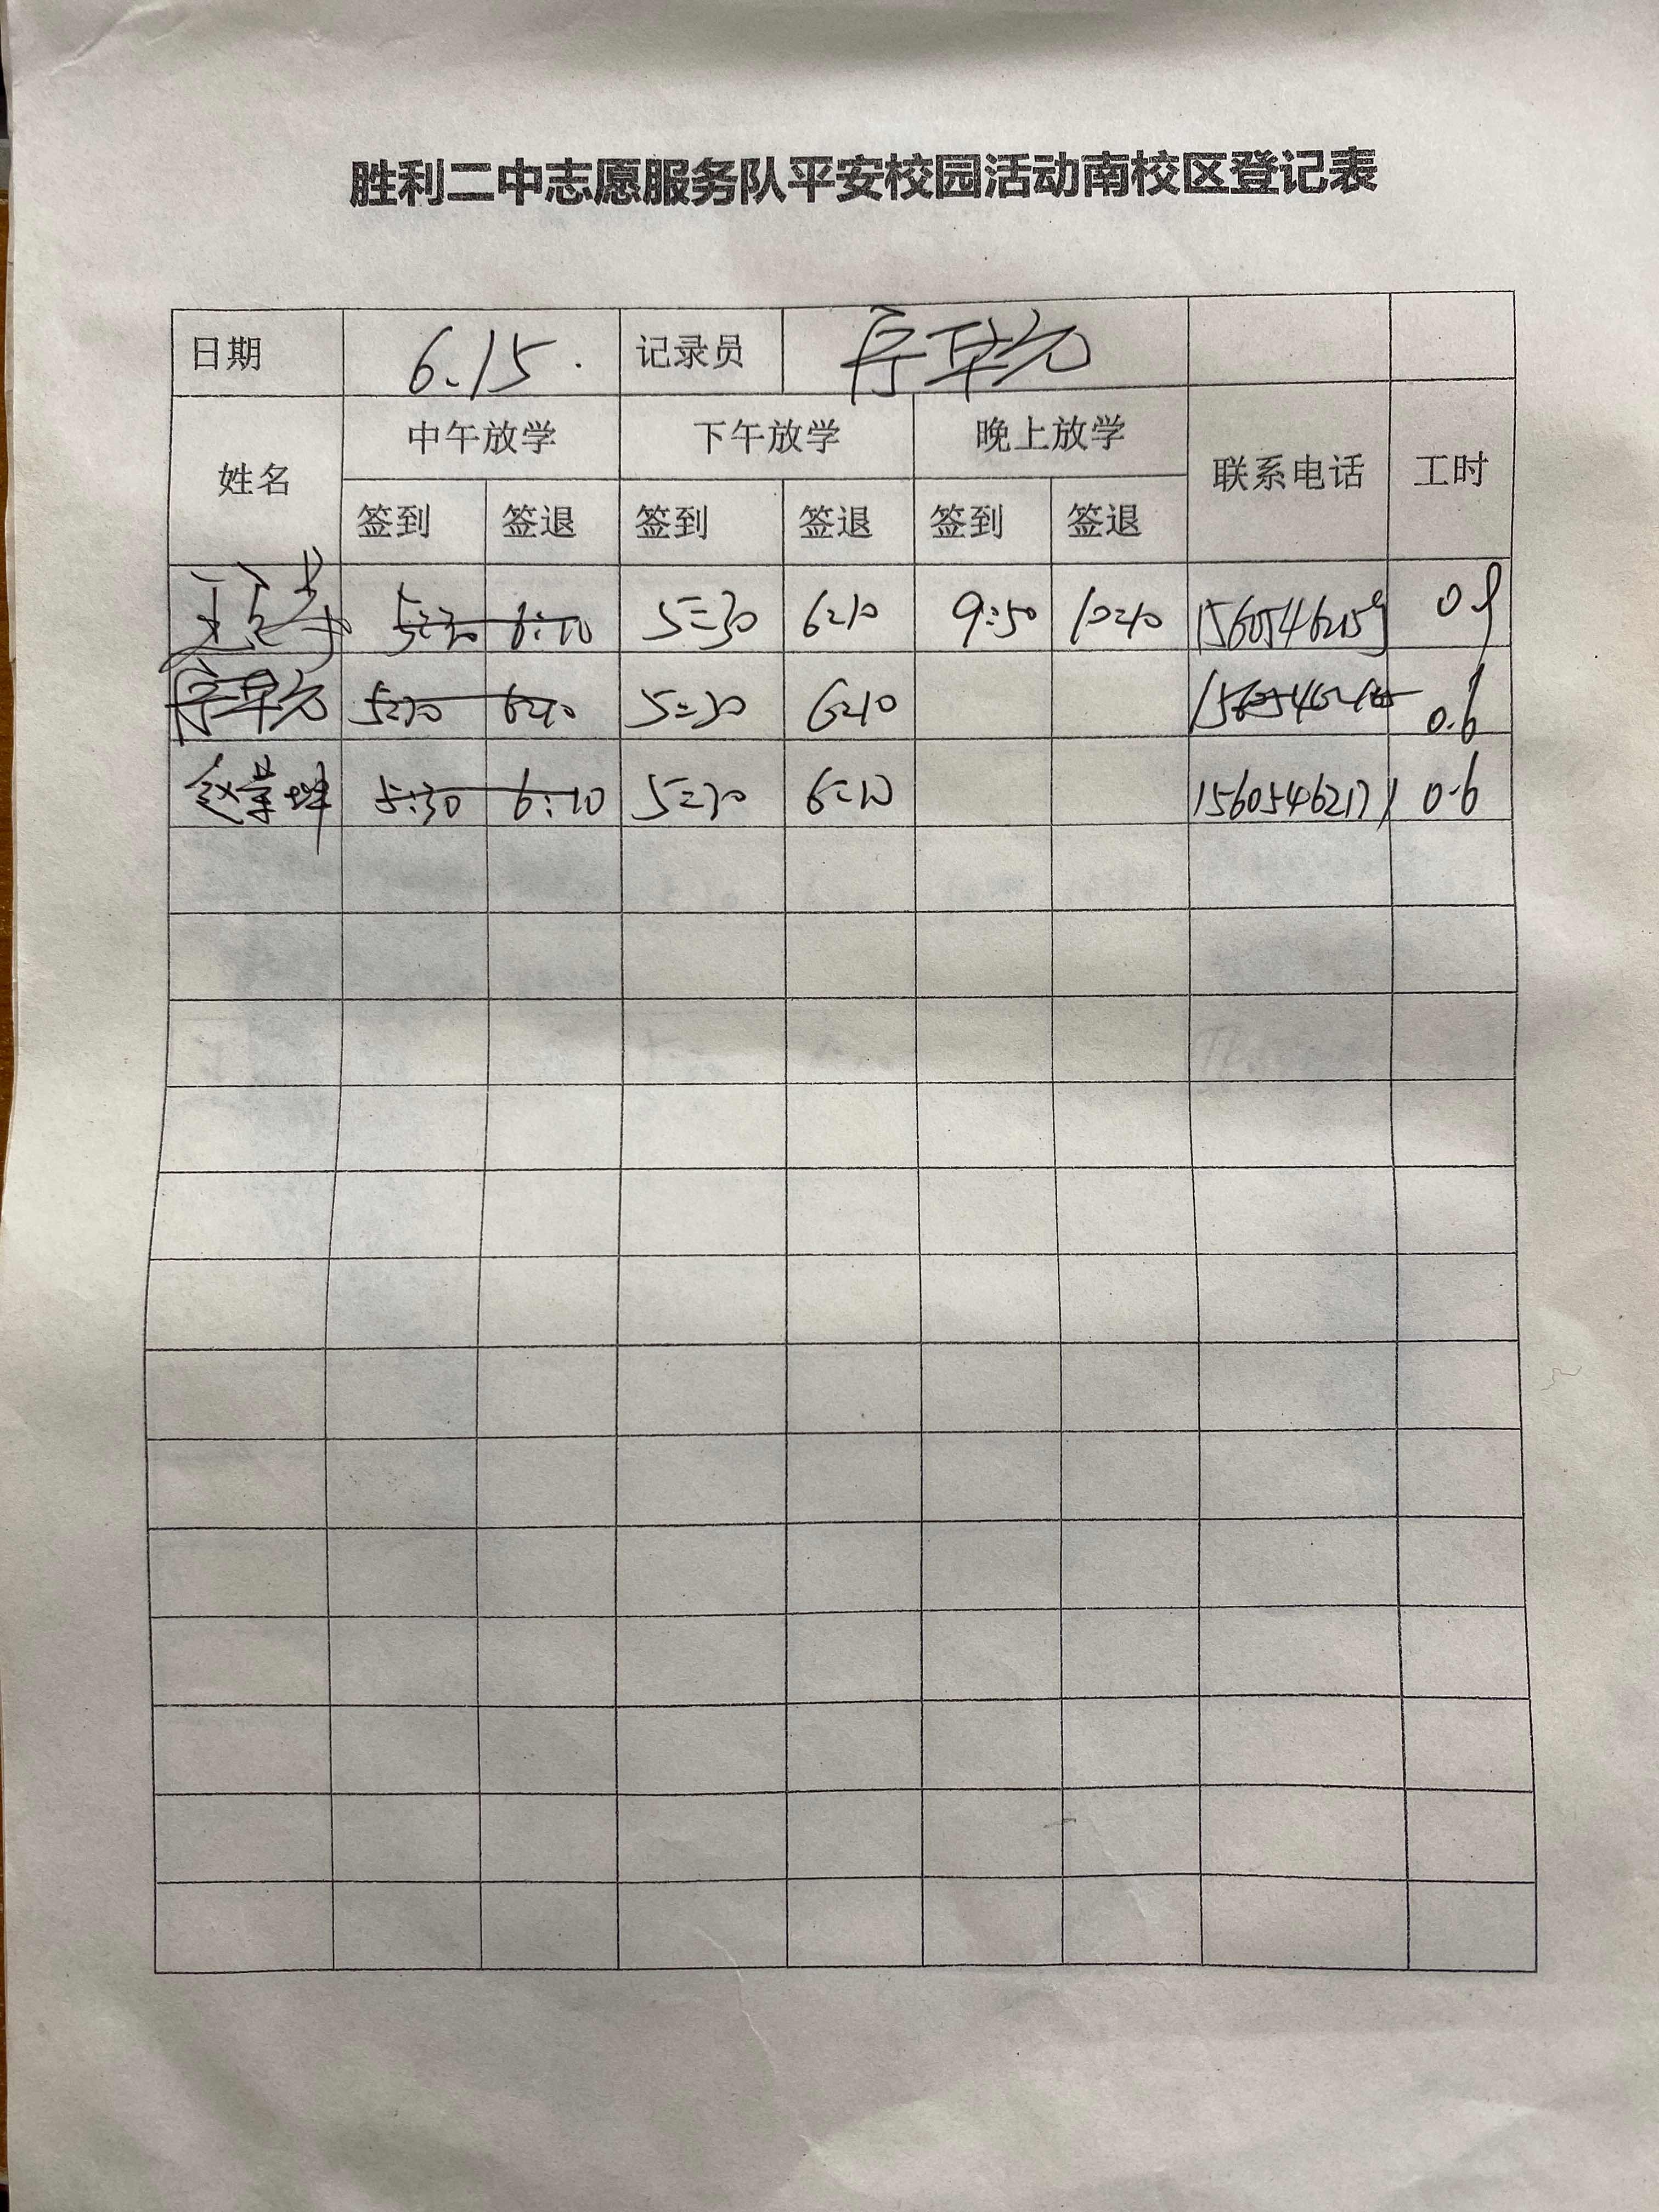 胜利二中志愿服务队平安校园活动南校区登记表
日期 6.15. 记录员
姓名 中午放学 下午放学 晚上放学 联系电话 工时
签到 签退 签到 签退 签到 签退
5:30 6:10 5:30 6:10 9:50 10:10 15605462159 0.9
5:30 6:10 5:30 6:10 0.6
赵 5:30 6:10 5:30 6:10 15605462171 0.6